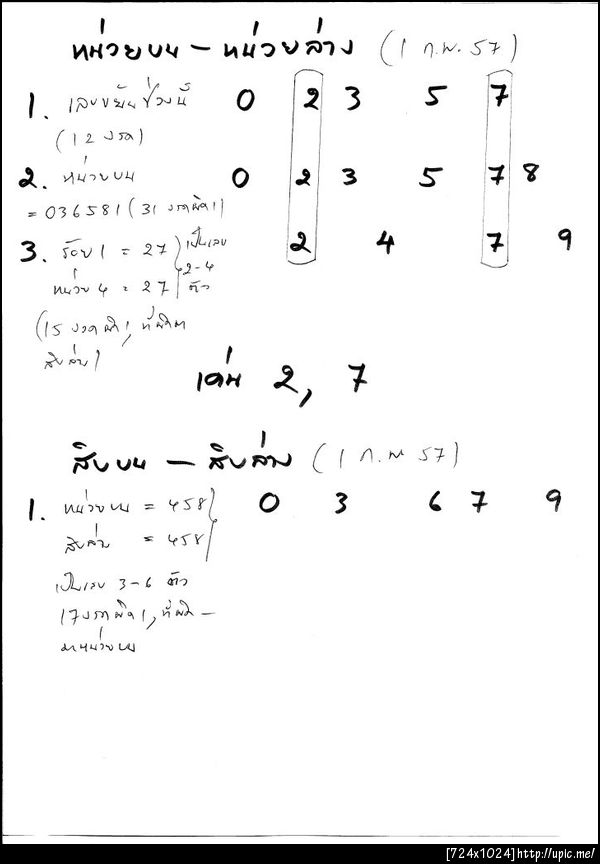 หน่วยบน – หน่วยล่าง (1 ก.พ. 57)
1. เลขขยันช่วงนี้ 0 2 3 5 7
(12 งวด)
2. หน่วยบน 0 2 3 5 7 8
= 036581 (31 งวดผิด1)
3. ร้อย 1 = 27 เป็นเลข 2 4 7 9
หน่วย 4 = 27 2-4 ตัว
(15 งวดผิด1, ที่ผิดมา
สิบล่าง)
เด่น 2, 7
สิบบน – สิบล่าง (1 ก.พ 57)
1. หน่วยบน = 458 0 3 6 7 9
สิบล่าง = 458
เป็นเลข 3-6 ตัว
17งวดผิด1, ที่ผิด –
มาหน่วยบน
[724x1024]http://upic.me/